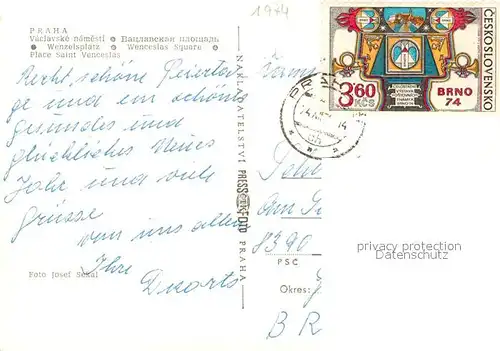 1974
PRAHA
Václavské náměstí ● Вацлавская площадь
● Wenzelsplatz ● Wenceslas Square ●
Place Saint Venceslas
Recht schöne Feierta-
ge und ein schönes
gesundes und
glückliches Neues
Jahr und viele
Grüsse
von uns allen
Ihre
Foto Josef Sekal
NAKLADATELSTVÍ PRESSFOTO PRAHA
ČESKOSLOVENSKO
3,60 KČS
BRNO
74
8390
PSČ
Okres:
BR
privacy protection
Datenschutz